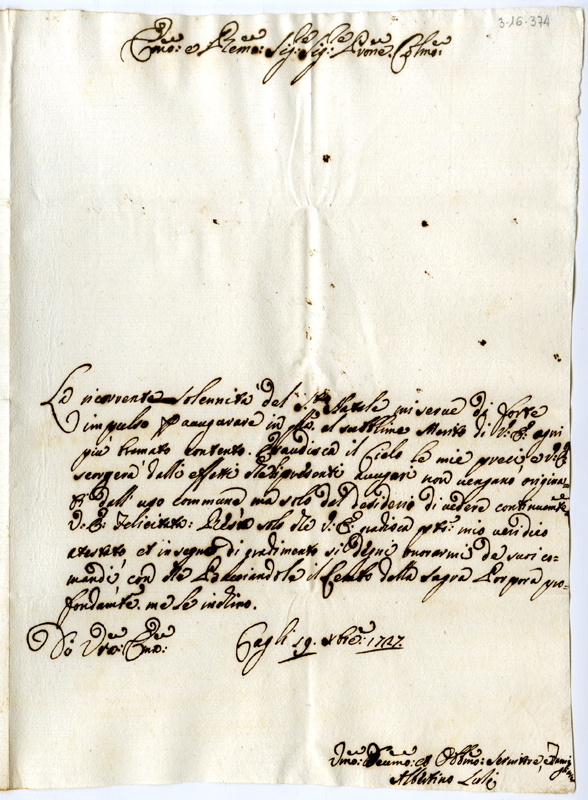 3-16-374
Emo: e Rmo: Sig: Sig: Prone Colmo:
La ricorrente solennità del S. Natale mi serue di forte
impulso p augurare in essa al sublime Merito di V: E: ogni
più bramato contento. Esaudisca il Cielo le mie preci, e V: E:
scorgerà dalli effetti che li presenti augurj non vengano origina-
ti dall' uso commune, ma solo dal desiderio di vedere continuamte
V: E: felicitata: Resta solo che V: E: gradisca mio veridico
atestato et in segno di gradimento si degni honorarmi de suoi co-
mandi, con che Bacciandole il Lembo della Sagra Porpora pro-
fondamte me le inchino.
Di Vra: Emza: Cagli 19. Xbre: 1727.
Umo: Deumo: et Obbmo: Seruitre,
Albertino Luli